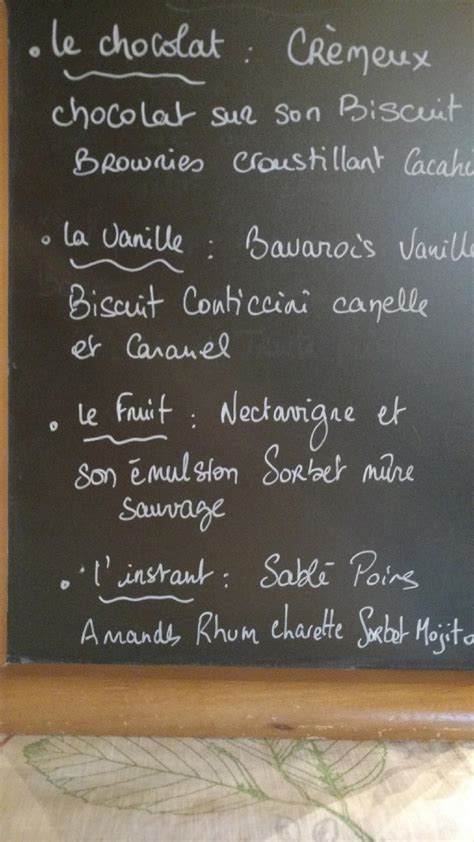 • le chocolat : Crèmeux
chocolat sur son Biscuit
Brownies croustillant Cacahu
• la Vanille : Bavarois Vanille
Biscuit Conticcini canelle
et Caramel
• le Fruit : Nectavigne et
son émulsion Sorbet mûre
sauvage
• l'instant : Sablé Poires
Amandes Rhum charette Sorbet Mojito